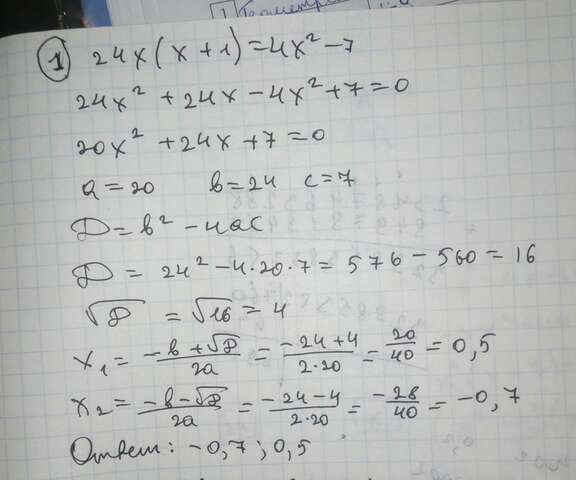 Геометри
1) 24x(x+1)=4x²-7
24x²+24x-4x²+7=0
20x²+24x+7=0
a=20 b=24 c=7
D=b²-4ac
D=24²-4·20·7=576-560=16
√D=√16=4
x₁=(-b+√D)/2a=(-24+4)/(2·20)=20/40=0,5
x₂=(-b-√D)/2a=(-24-4)/(2·20)=-28/40=-0,7
Ответ: -0,7; 0,5